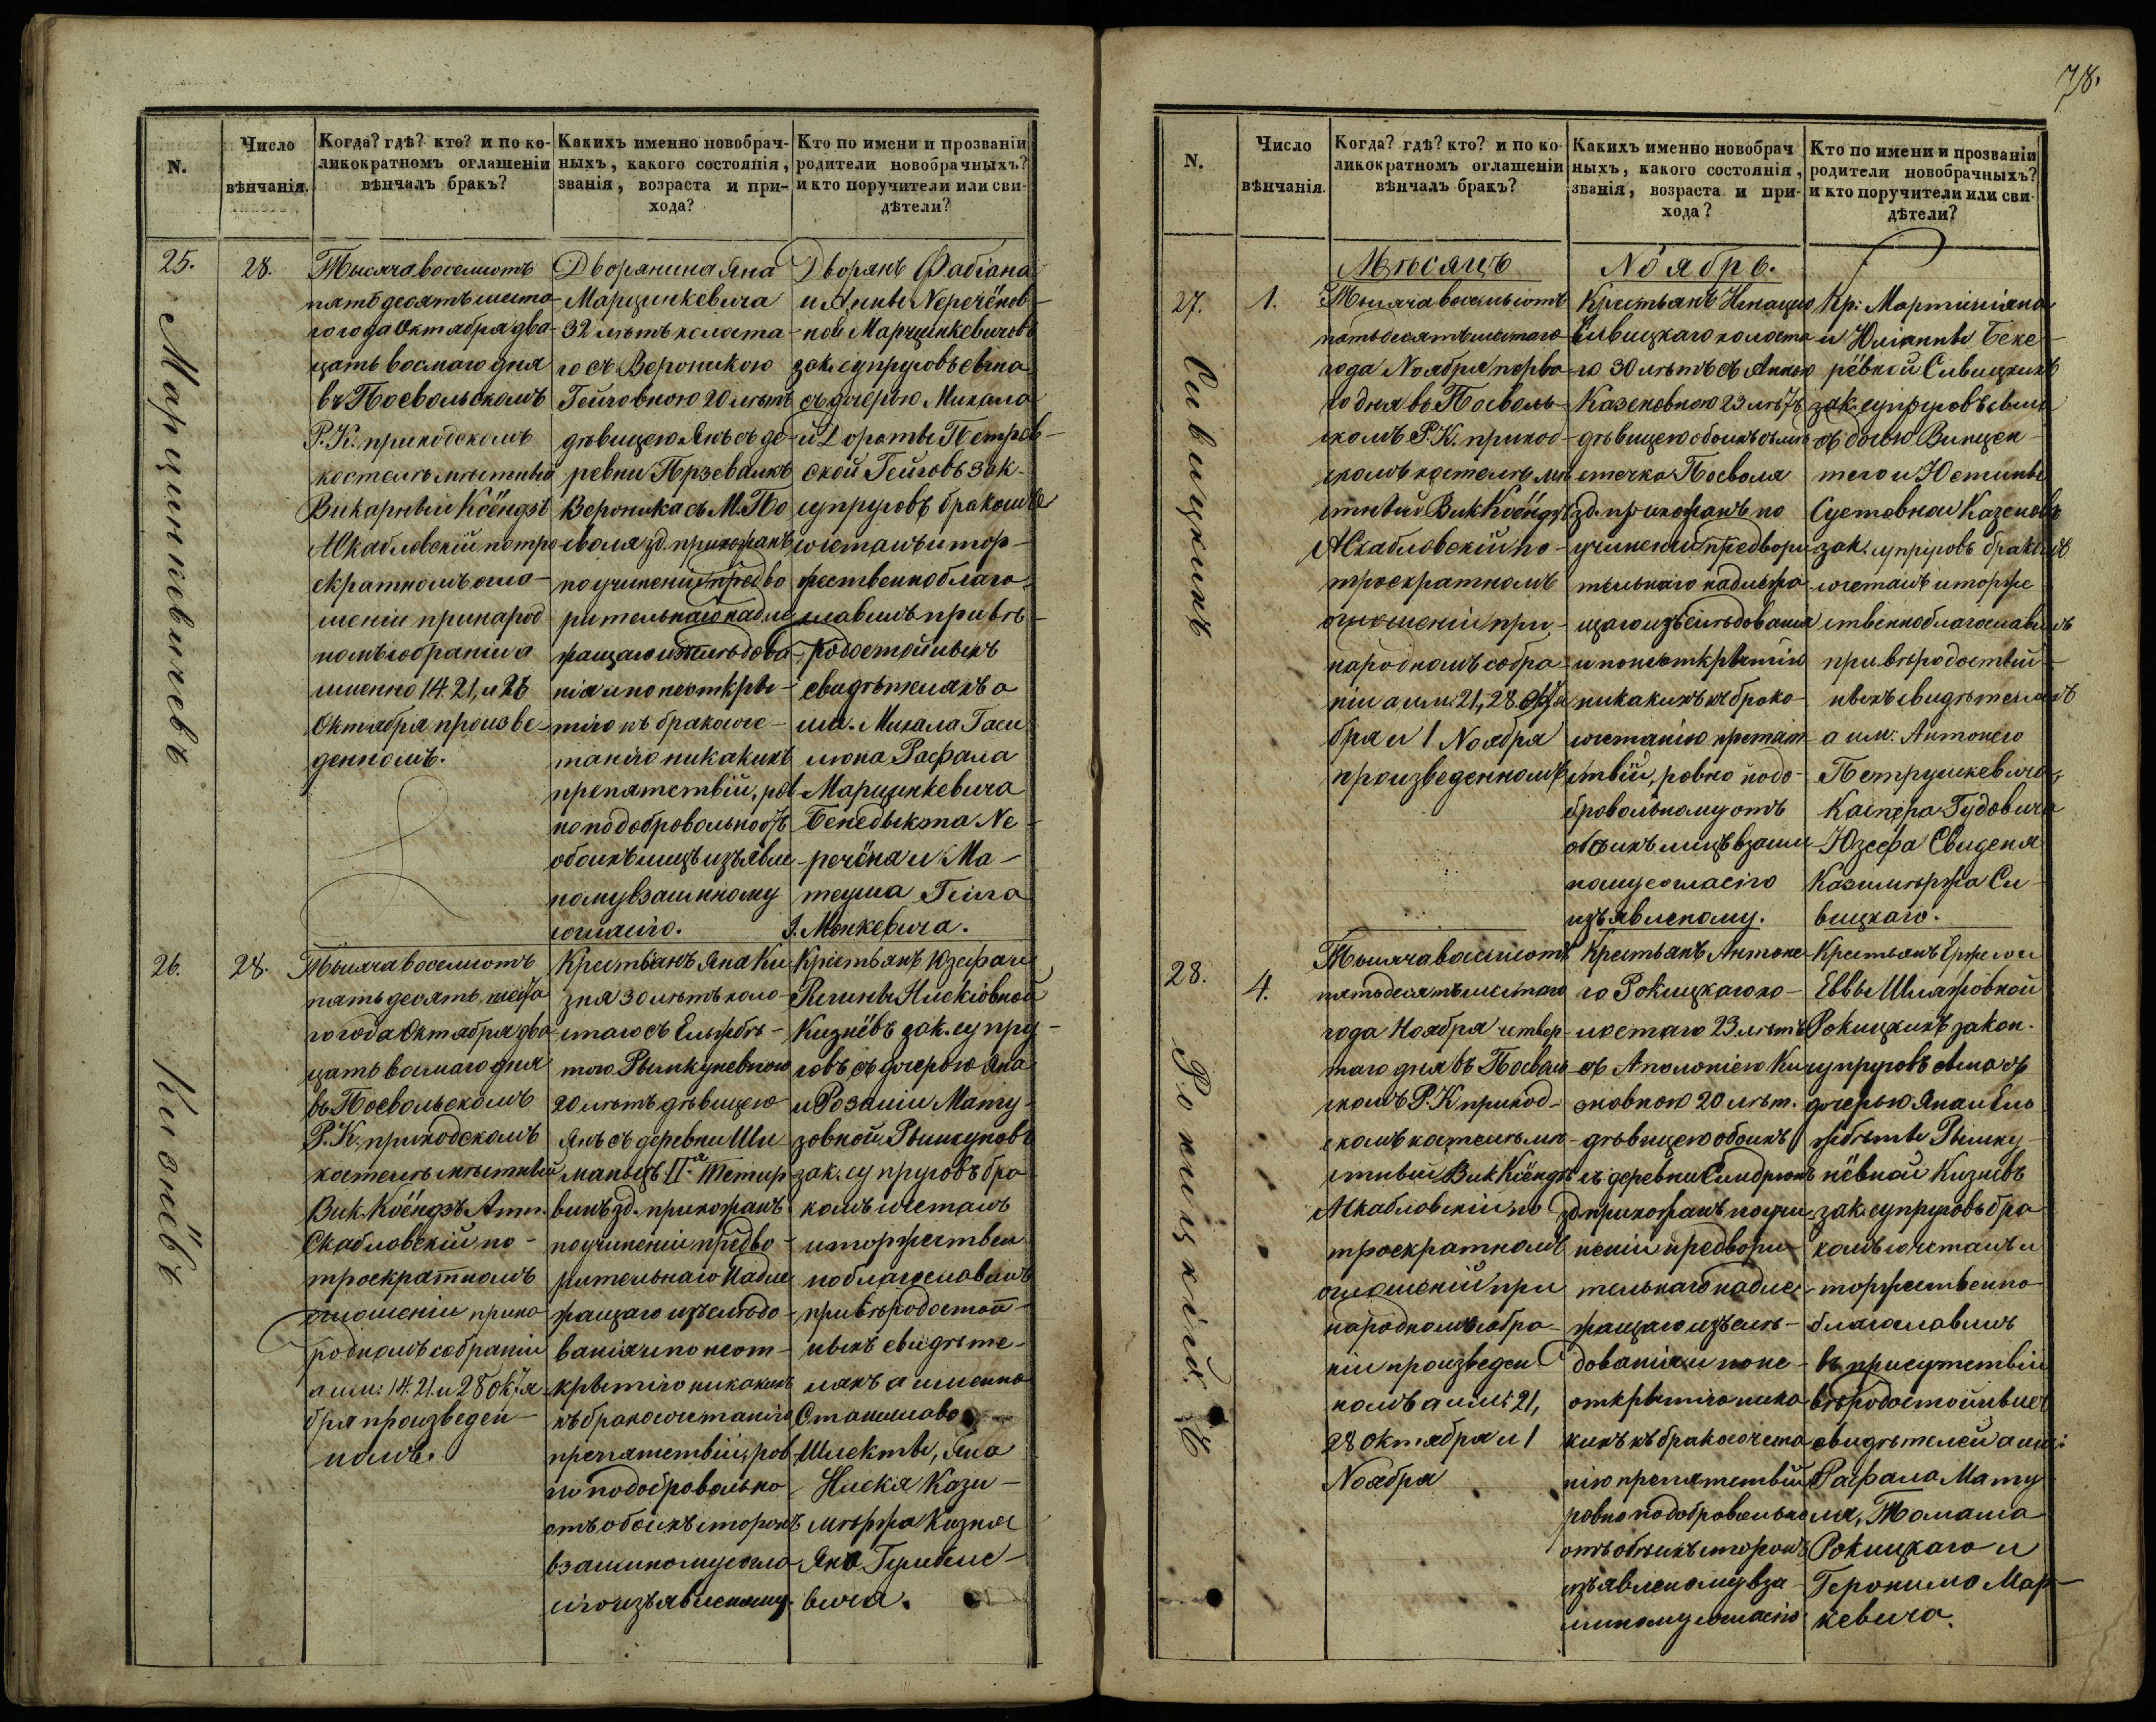 N.
Число
вѣнчанія.
Когда? гдѣ? кто? и по ко-
ликократномъ оглашеніи
вѣнчалъ бракъ?
Какихъ именно новобрач-
ныхъ, какого состоянія,
званія, возраста и при-
хода?
Кто по имени и прозванiи
родители новобрачныхъ?
и кто поручители или сви-
дѣтели?
25.
Марцинкевичевъ
28.
Тысяча восемьсотъ
пятьдесятъ шеста-
го года Октября два-
цать восмаго дня
въ Посвольскомъ
Р. К. приходскомъ
костелѣ мѣстный
Викарный Ксёндзъ
Скабловскій по тро
екратномъ огла-
шеніи при народ
номъ собраніи а
именно 14. 21, и 28
Октября произве-
денномъ.
Дворянина Яна
Марцинкевича
32 лѣтъ холоста-
го съ Вероникою
Гейговною 20 лѣтъ
дѣвицею Янъ съ де
ревни Прзевалкъ
Вероника съ М. По
своля зд. прихожанъ
по учиненіи предво
рительнаго надле
жащаго изслѣдова-
нія и по неоткры-
тію къ бракосоче-
танію никакихъ
препятствій, ров
но по добровольно отъ
обоихъ лицъ изъявле
ному взаимному
согласію.
Дворянъ Фабіана
и Анны Неречёнов-
ной Марцинкевичовъ
зак. супруговъ сына
съ дочерью Михала
и Дороты Петров-
ской Гейговъ зак-
супруговъ бракомъ
сочеталъ и тор-
жественно благо-
славилъ при вѣ-
родостойныхъ
свидѣтеляхъ а
им. Михала Гаси
люна Рафала
Марцинкевича
Бенедыкта Не-
речёня и Ма-
теуша
I. Монкевича.
26.
Кизнёвъ
28.
Тысяча восемьсотъ
пятьдесятъ шеста
го года Октября два
цать восмаго дня
въ Посвольскомъ
Р. К. приходскомъ
костелѣ мѣстный
Вик. Ксёндзъ Ант.
Скабловскій по-
троекратномъ
оглашеніи при на
родномъ собраніи
а им: 14. 21. и 28 Октя
бря произведен-
номъ.
Крестьянъ Яна Ки
зня 30 лѣтъ холо-
стаго съ Ельжбѣ-
тою Рымкуневною
20 лѣтъ дѣвицею
Янъ съ деревни Ши
манецъ II.а Тетир
винъ зд. прихожанъ
по учиненіи предво-
рительнаго Надле
жащаго изслѣдо-
ванія и по неот-
крытію никакихъ
къ бракосочетанію
препятствій, ров
но по добровольно
отъ обоихъ сторонъ
взаимному согла-
сію изъявленному.
Крестьянъ Юзефа и
Регины Илскіовной
Кизнёвъ зак. супру-
говъ съ дочерью Яна
и Розаліи Мату-
зовной Рымкуновъ
зак. супруговъ бра
комъ сочеталъ
и торжествен
но благославилъ
при вѣродостой-
ныхъ свидѣте-
ляхъ а именно
Станислава
Шлекты, Яна
Илскя Кази-
мѣржа Кизня
Яна Гумбиле-
вича.
78.
N.
Число
вѣнчанія.
Когда? гдѣ? кто? и по ко-
ликократномъ оглашеніи
вѣнчалъ бракъ?
Какихъ именно новобрач
ныхъ, какого состоянія,
званія, возраста и при-
хода?
Кто по имени и прозваніи
родители новобрачныхъ?
и кто поручители или сви-
дѣтели?
Мѣсяцъ Ноябрь.
27.
Сивицкихъ
1.
Тысяча восемьсотъ
пятьдесятъ шестаго
года Ноября перва
го дня въ Посволь-
скомъ Р. К. приход-
скомъ костелѣ мѣ
стный Вик Ксёндзъ
Скабловскій по-
троекратномъ
оглашеніи при-
народномъ собра-
ніи а им: 21, 28 Октя
бря и 1 Ноября
произведенномъ
Крестьянъ Игнацыо
Сивицкаго холоста
го 30 лѣтъ съ Анною
Казеновною 23 лѣтъ
дѣвицею обоихъ съ мѣ
стечка Посволя
зд. прихожанъ по
учиненіи предвори
тельнаго надлежа
щаго изслѣдованія
и по неоткрытію
никакихъ къ брако-
сочетанію препят
ствій, ровно по до-
бровольному отъ
обоихъ лицъ взаим
ному согласію
изъявленому.
Кр: Мартиніяна
и Юліанны Беке-
рёвной Сивицкихъ
зак. супруговъ сына
съ дочью Винцен-
тего и Юстины
Суетовной Казеновъ
зак. супруговъ бракомъ
сочеталъ и торже
ственно благославилъ
при вѣродостой-
ныхъ свидѣтеляхъ
а им: Антонего
Петрушкевича,
Каспера Гудовича
Юзефа Свиденя
Казимѣржа Си-
вицкаго.
28.
Рокицкій
4.
Тысяча восемьсотъ
пятьдесятъ шестаго
года Ноября четвер
таго дня въ Посволь
скомъ Р. К приход-
скомъ костелѣ мѣ
стный Вик Ксёндзъ
Скабловскій по
троекратномъ
оглашеніи при
народномъ собра-
ніи произведен
номъ а им: 21,
28 Октября и 1
Ноября
Крестьянъ Антоне-
го Рокицкаго хо-
лостаго 23 лѣтъ
съ Аполонією Ки
зновною 20 лѣт.
дѣвицею обоихъ
съ деревни Симдрюнъ
зд. прихожанъ по учи
неніи предвори-
тельнаго надле-
жащаго изслѣ-
дованія и по не-
открытію ника
кихъ къ бракосочета
нію препятствій
ровно по добровольно
отъ обоихъ сторонъ
изъявленому вза-
имному согласію
Крестьянъ Ержего и
Еввы Шляжовной
Рокицкихъ закон.
супруговъ сына съ
дочерью Яна и Ель
жбѣты Рымку-
нёвной Кизнёвъ
зак. супруговъ бра
комъ сочеталъ и
торжественно
благославилъ
въ присутствіи
вѣродостойныхъ
свидѣтелей а им:
Рафала Мату
ля, Томаша
Рокицкаго и
Геронима Мар-
кевича.